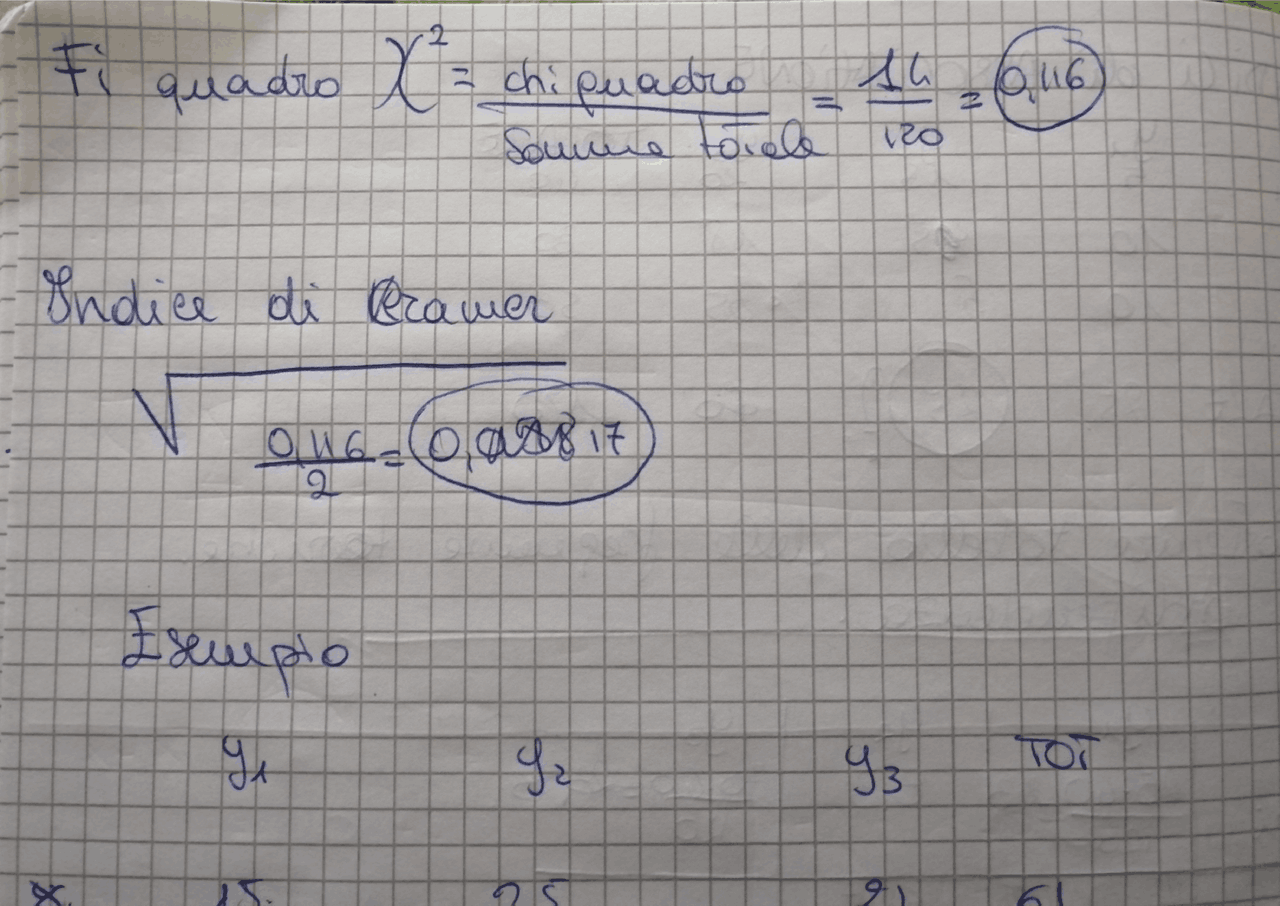 Fi quadro χ² = chi quadro / Somma totale = 14 / 120 = 0,116
Indice di Cramer
√ 0,116 / 2 =
Esempio
y1 y2 y3 TOT
15 25 21 61